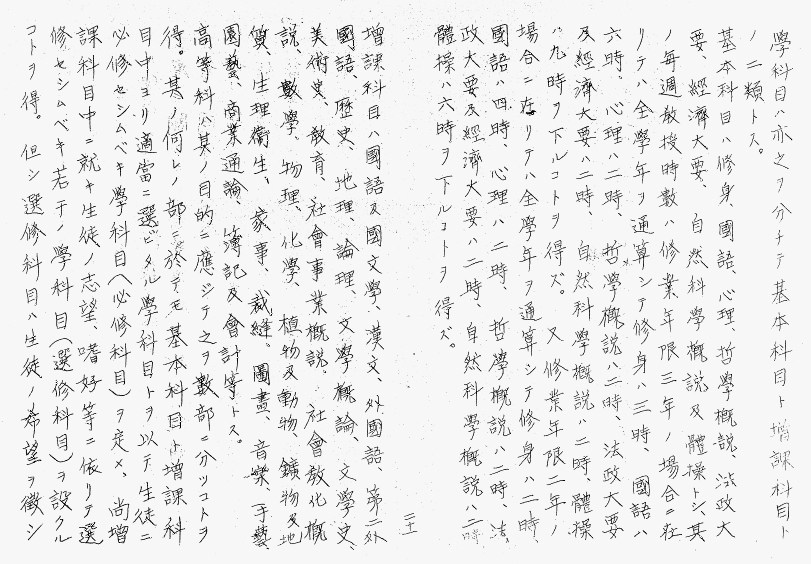 學科目ハ亦之ヲ分チテ基本科目ト増課科目ト
ノ二類トス。
基本科目ハ修身、國語、心理、哲學概說、法政大
要、經濟大要、自然科學概說及體操トシ、其
ノ每週敎授時數ハ修業年限三年ノ場合ニ在
リテハ全學年ヲ通算シテ修身ハ三時、國語ハ
六時、心理ハ二時、哲學概說ハ二時、法政大要
及經濟大要ハ二時、自然科學概說ハ二時、體操
ハ九時ヲ下ルコトヲ得ズ。又修業年限二年ノ
場合ニ在リテハ全學年ヲ通算シテ修身ハ二時、
國語ハ四時、心理ハ二時、哲學概說ハ二時、法
政大要及經濟大要ハ二時、自然科學概說ハ二時
體操ハ六時ヲ下ルコトヲ得ズ。
二十
增課科目ハ國語及國文學、漢文、外國語、第二外
國語、歷史、地理、論理、文學概論、文學史、
美術史、敎育、社會事業概說、社會敎化概
說、數學、物理、化學、植物及動物、鑛物及地
質、生理衞生、家事、裁縫、圖畫、音樂、手藝、
園藝、商業通論、簿記及會計等トス。
高等科ハ其ノ目的ニ應ジテ之ヲ數部ニ分ツコトヲ
得。其ノ何レノ部ニ於テモ基本科目ト增課科
目中ヨリ適當ニ選ビタル學科目トヲ以テ生徒ニ
必修セシムベキ學科目(必修科目)ヲ定メ、尙增
課科目中ニ就キ生徒ノ志望、嗜好等ニ依リテ選
修セシムベキ若干ノ學科目(選修科目)ヲ設クル
コトヲ得。但シ選修科目ハ生徒ノ希望ヲ徵シ